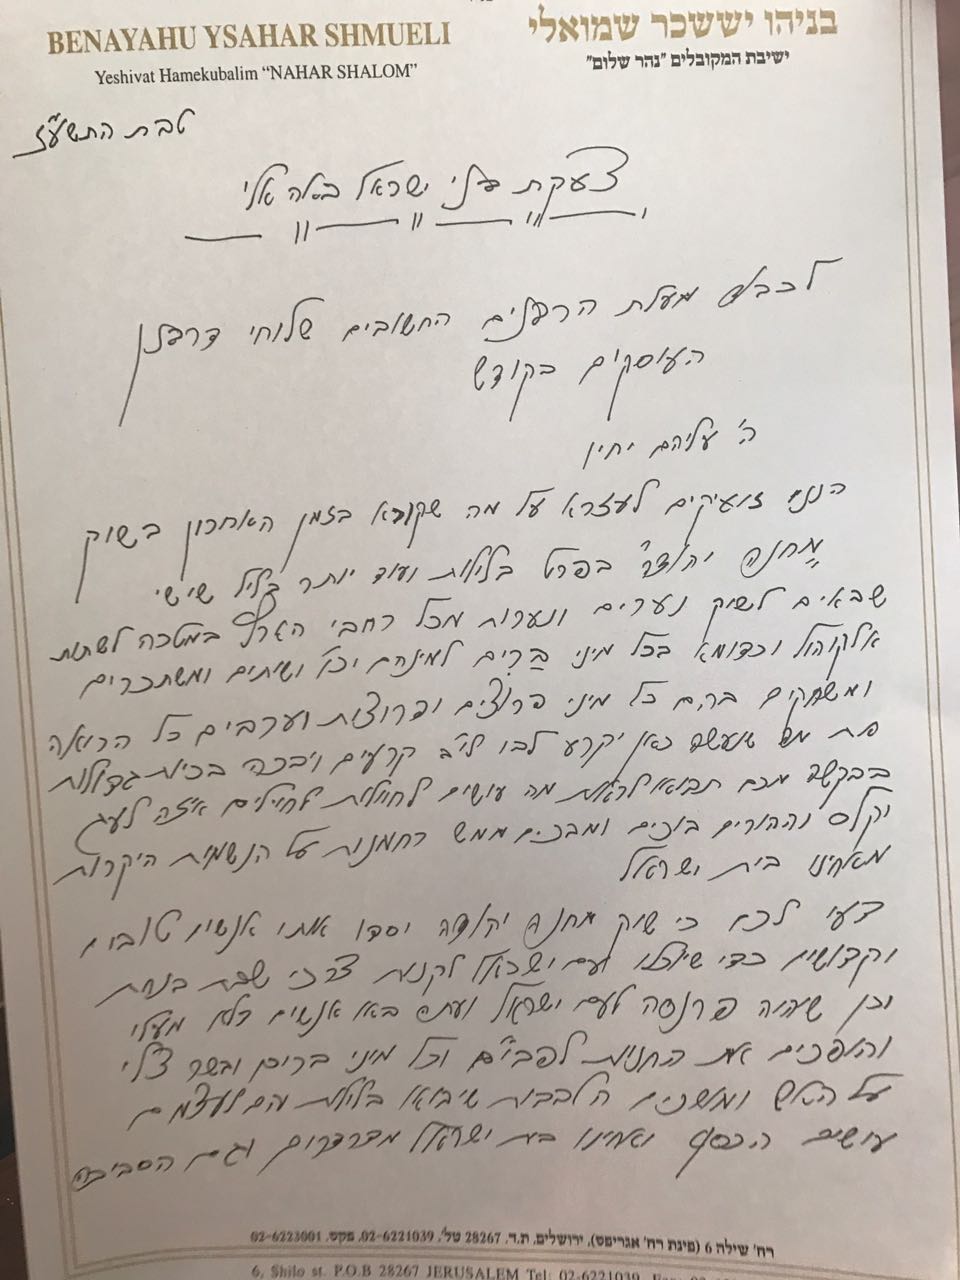 BENAYAHU YSAHAR SHMUELI
בניהו יששכר שמואלי
Yeshivat Hamekubalim “NAHAR SHALOM”
ישיבת המקובלים "נהר שלום"
טבת התשע"ז
צעקת בני ישראל באה אלי
לכבוד מעלת הרבנים החשובים שלוחי דרבנן
העוסקים בקודש
ה' עליהם יחיו
הננו זועקים לעזרא על מה שקורא בזמן האחרון בשוק
מחנה יהודה בפרט בלילות ועוד יותר בליל שישי
שבאים לשוק נערים ונערות מכל רחבי הארץ במטרה לשתות
אלקוהול וכדומא בכל מיני ברים למינהם יכו' ושותים ומשתכרים
ומשחקים בהם כל מיני פרוצים ופרוצות וערבים כל הרואה
את מה שנעשה כאן יקרע לבו לי"ב קרעים ויבכה בכיות גדולות
בבקשה מכם תבואו לראות מה עושים לחיילות לחיילים איזה לעג
וקלס וההורים בוכים ומבכים ממש רחמנות על הנשמות היקרות
מאחינו בית ישראל
דעו לכם כי שוק מחנה יהודה יסדו אותו אנשים טובים
וקדושים כדי שיוכלו עם ישראל לקנות צרכי שבת בנחת
וכן שיהיה פרנסה לעם ישראל ועתה באו אנשים דלא מעלי
והופכים את החנויות לפבי"ם וכל מיני ברים ובשר צלי
על האש ומושכים הלבבות שיבואו בלילות והם לעצמם
עושים הכסף ואחינו בית ישראל מדרדרים וגם הסביבה
רח' שילה 6 (פינת רח' אגריפס), ירושלים, ת.ד. 28267 טל'. 02-6221039, פקס. 02-6223001
6, Shilo st. P.O.B 28267 JERUSALEM Tel: 02-6221039